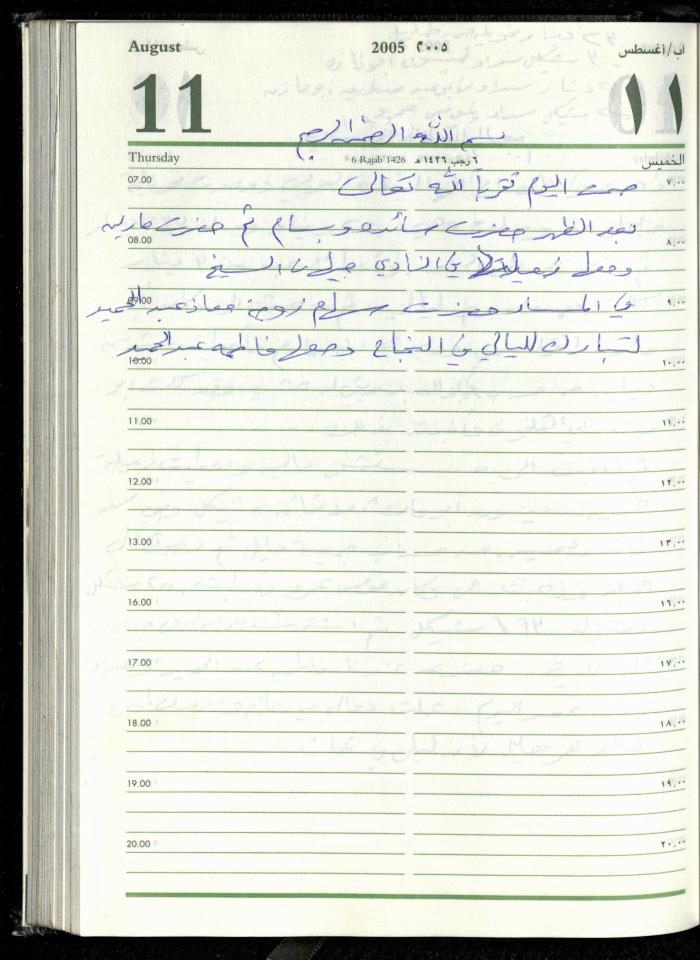 August 2005 ٢٠٠٥ آب/أغسطس
11 ١١
بسم الله الرحمن الرحيم
Thursday 6 Rajab 1426 ٦ رجب ١٤٢٦ هـ الخميس
07.00 صمت اليوم تقرباً لله تعالى ٧,٠٠
بعد الظهر حضرت سائده وبسام ثم حضرت مارلين
08.00 ٨,٠٠
ومعها زميلاتها في النادي جيهان الشيخ
09.00 في المساء حضرت سهام زوجة معاذ عبد الحميد ٩,٠٠
لتبارك لليالي في النجاح ومعها فاطمه عبد الحميد
10.00 ١٠,٠٠
11.00 ١١,٠٠
12.00 ١٢,٠٠
13.00 ١٣,٠٠
16.00 ١٦,٠٠
17.00 ١٧,٠٠
18.00 ١٨,٠٠
19.00 ١٩,٠٠
20.00 ٢٠,٠٠